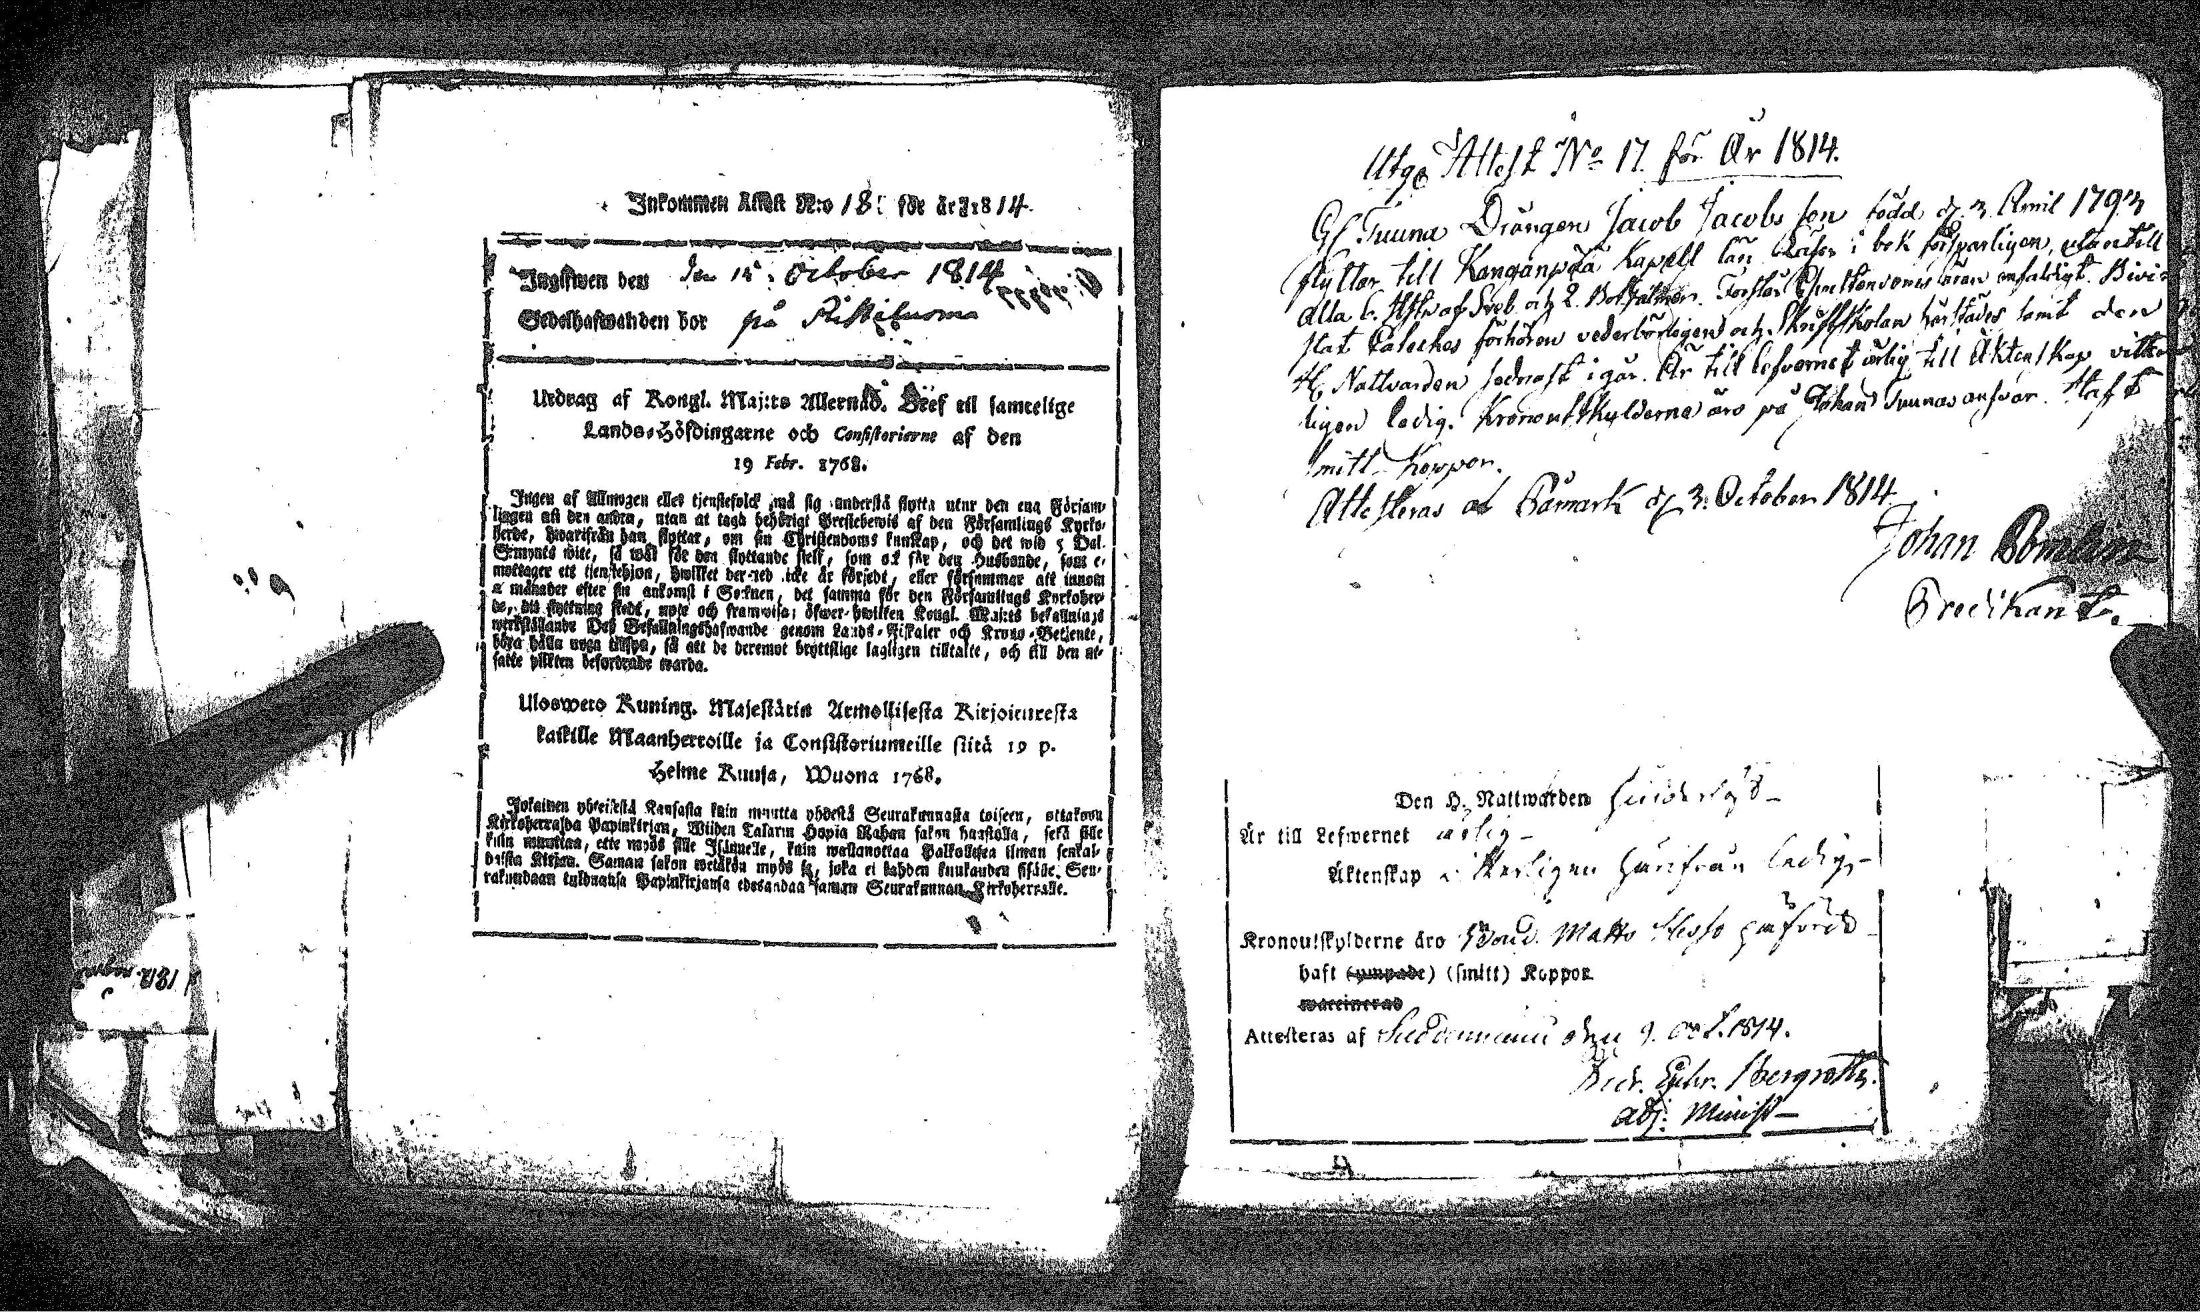 Inkommen Attest N:o 18: för året 1814.
Ingifwen den den 12. October 1814
Sedelhafwanden bor på Ristiluoma
Utdrag af Kongl. Maj:ts Allernåd. Bref til samtelige
Lands-Höfdingarne och Consistorierne af den
19 Febr. 1768.
Ingen af Allmogen eller tjenstefolck må sig understå flytta utur den ena Försam-
lingen uti den andra, utan at taga behörigt Prestebewis af den Församlings Kyrko-
herde, hwarifrån han flyttar, om sin Christendoms kunskap, och det wid 5 Dal.
S:rmynts wite, så wäl för den flyttande sielf, som ock för den Husbonde, som e-
mottager ett tjenstehjon, hwilket der-med icke är försedt, eller försummar att innom
2 månader efter sin ankomst i Socknen, det samma för den Församlings Kyrkoher-
de, dit flyttning skedt, upte och framwisa; öfwer-hwilken Kongl. Maj:ts befallnings
werkställande Deß Befallningshafwande genom Lands-Fiskaler och Krono-Betjente,
böra hålla noga tillsyn, så att de deremot brottslige lagligen tilltalte, och till den ut-
satte plikten befordrade warda.
Ulosweto Kuning. Majestätin Armollisesta Kirjoituxesta
kaikille Maanherroille ja Consistoriumeille siitä 19 p.
Helme Kuusa, Wuona 1768.
Jokainen yhteisestä Kansasta kuin muutta yhdestä Seurakunnasta toiseen, ottakoon
Kirkoherralda Papinkirjan, Wiiden Talarin Hopia Rahan sakon haastolla, sekä sille
kuin muuttaa, ette myös sille Isännelle, kuin wastanottaa Palkollisen ilman senkal-
daista Kirjaa. Saman sakon wetäkön myös se, joka ei kahden kuukauden sisälle Seu-
rakundaan tulduansa Papinkirjansa edesandaa saman Seurakunnan Kirkoherralle.
Utge Attest No 17. för År 1814.
Gl. Tuuna Drängen Jacob Jacobs son född d. 3. April 1793
flyttar till Kangänpää Kapell län läser i bok försvarligen, utantill
alla b. och 2. Botpsalmer. Förstår Christendomsläran enfaldigt. Bivi-
stat Catechesförhören vederbörligen och Skriftskolan härstädes samt den
H. Nattvarden sednast i går. Är till lefvernet ärlig till Äktenskap vitter-
ligen ledig. Kronoutskylderna äro på Johan Tuunas ansvar. Haft
smitt-Koppor.
Attesteras af Påmark d. 3. October 1814
Johan Bomelin
Predikant.
Den H. Nattwarden
Är till Lefwernet ärlig -
Äktenskap witterligen härifrån ledig, -
Kronoutskylderne äro Bond. Matts påförde
haft (ympade) (smitt) Koppor
waccinerad
Attesteras af den 9. Oct. 1814.
Bergroth.
adj. Minist -